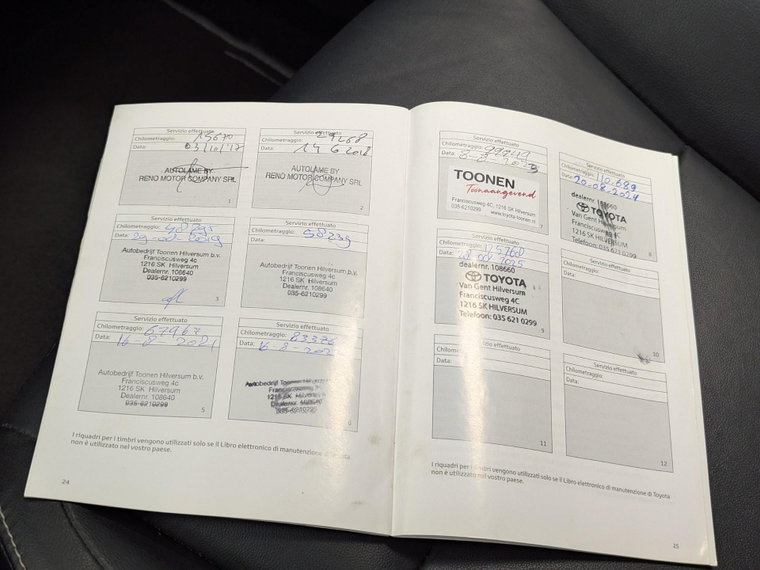 Servizio effettuato
Chilometraggio: 15670
Data: 03/10/17
AUTOLAME BY
RENO MOTOR COMPANY SRL
1
Servizio effettuato
Chilometraggio: 29268
Data: 14 6 2018
AUTOLAME BY
RENO MOTOR COMPANY SRL
2
Servizio effettuato
Chilometraggio:
Data:
Autobedrijf Toonen Hilversum b.v.
Franciscusweg 4c
1216 SK Hilversum
Dealernr. 108640
035-6210299
3
Servizio effettuato
Chilometraggio: 58239
Data:
Autobedrijf Toonen Hilversum b.v.
Franciscusweg 4c
1216 SK Hilversum
Dealernr. 108640
035-6210299
4
Servizio effettuato
Chilometraggio: 67967
Data: 16-8-2021
Autobedrijf Toonen Hilversum b.v.
Franciscusweg 4c
1216 SK Hilversum
Dealernr. 108640
035-6210299
5
Servizio effettuato
Chilometraggio: 83376
Data: 16-8-202
Autobedrijf Toonen Hilversum b.v.
Franciscusweg
1216 SK Hilversum
Dealernr. 108640
035-6210299
6
I riquadri per i timbri vengono utilizzati solo se il Libro elettronico di manutenzione di Toyota
non è utilizzato nel vostro paese.
24
Servizio effettuato
Chilometraggio:
Data: 8-8-2023
TOONEN
Toonaangevend
Franciscusweg 4C, 1216 SK Hilversum
035-6210299 www.toyota-toonen.nl
7
Servizio effettuato
Chilometraggio: 110.689
Data: 20-08-2024
dealernr.
TOYOTA
Van Gent Hilversum
Franciscusweg 4C
1216 SK HILVERSUM
Telefoon: 035 621 0299
8
Servizio effettuato
Chilometraggio:
Data:
dealernr. 108660
TOYOTA
Van Gent Hilversum
Franciscusweg 4C
1216 SK HILVERSUM
Telefoon: 035 621 0299
9
Servizio effettuato
Chilometraggio:
Data:
10
Servizio effettuato
Chilometraggio:
Data:
11
Servizio effettuato
Chilometraggio:
Data:
12
I riquadri per i timbri vengono utilizzati solo se il Libro elettronico di manutenzione di Toyota
non è utilizzato nel vostro paese.
25